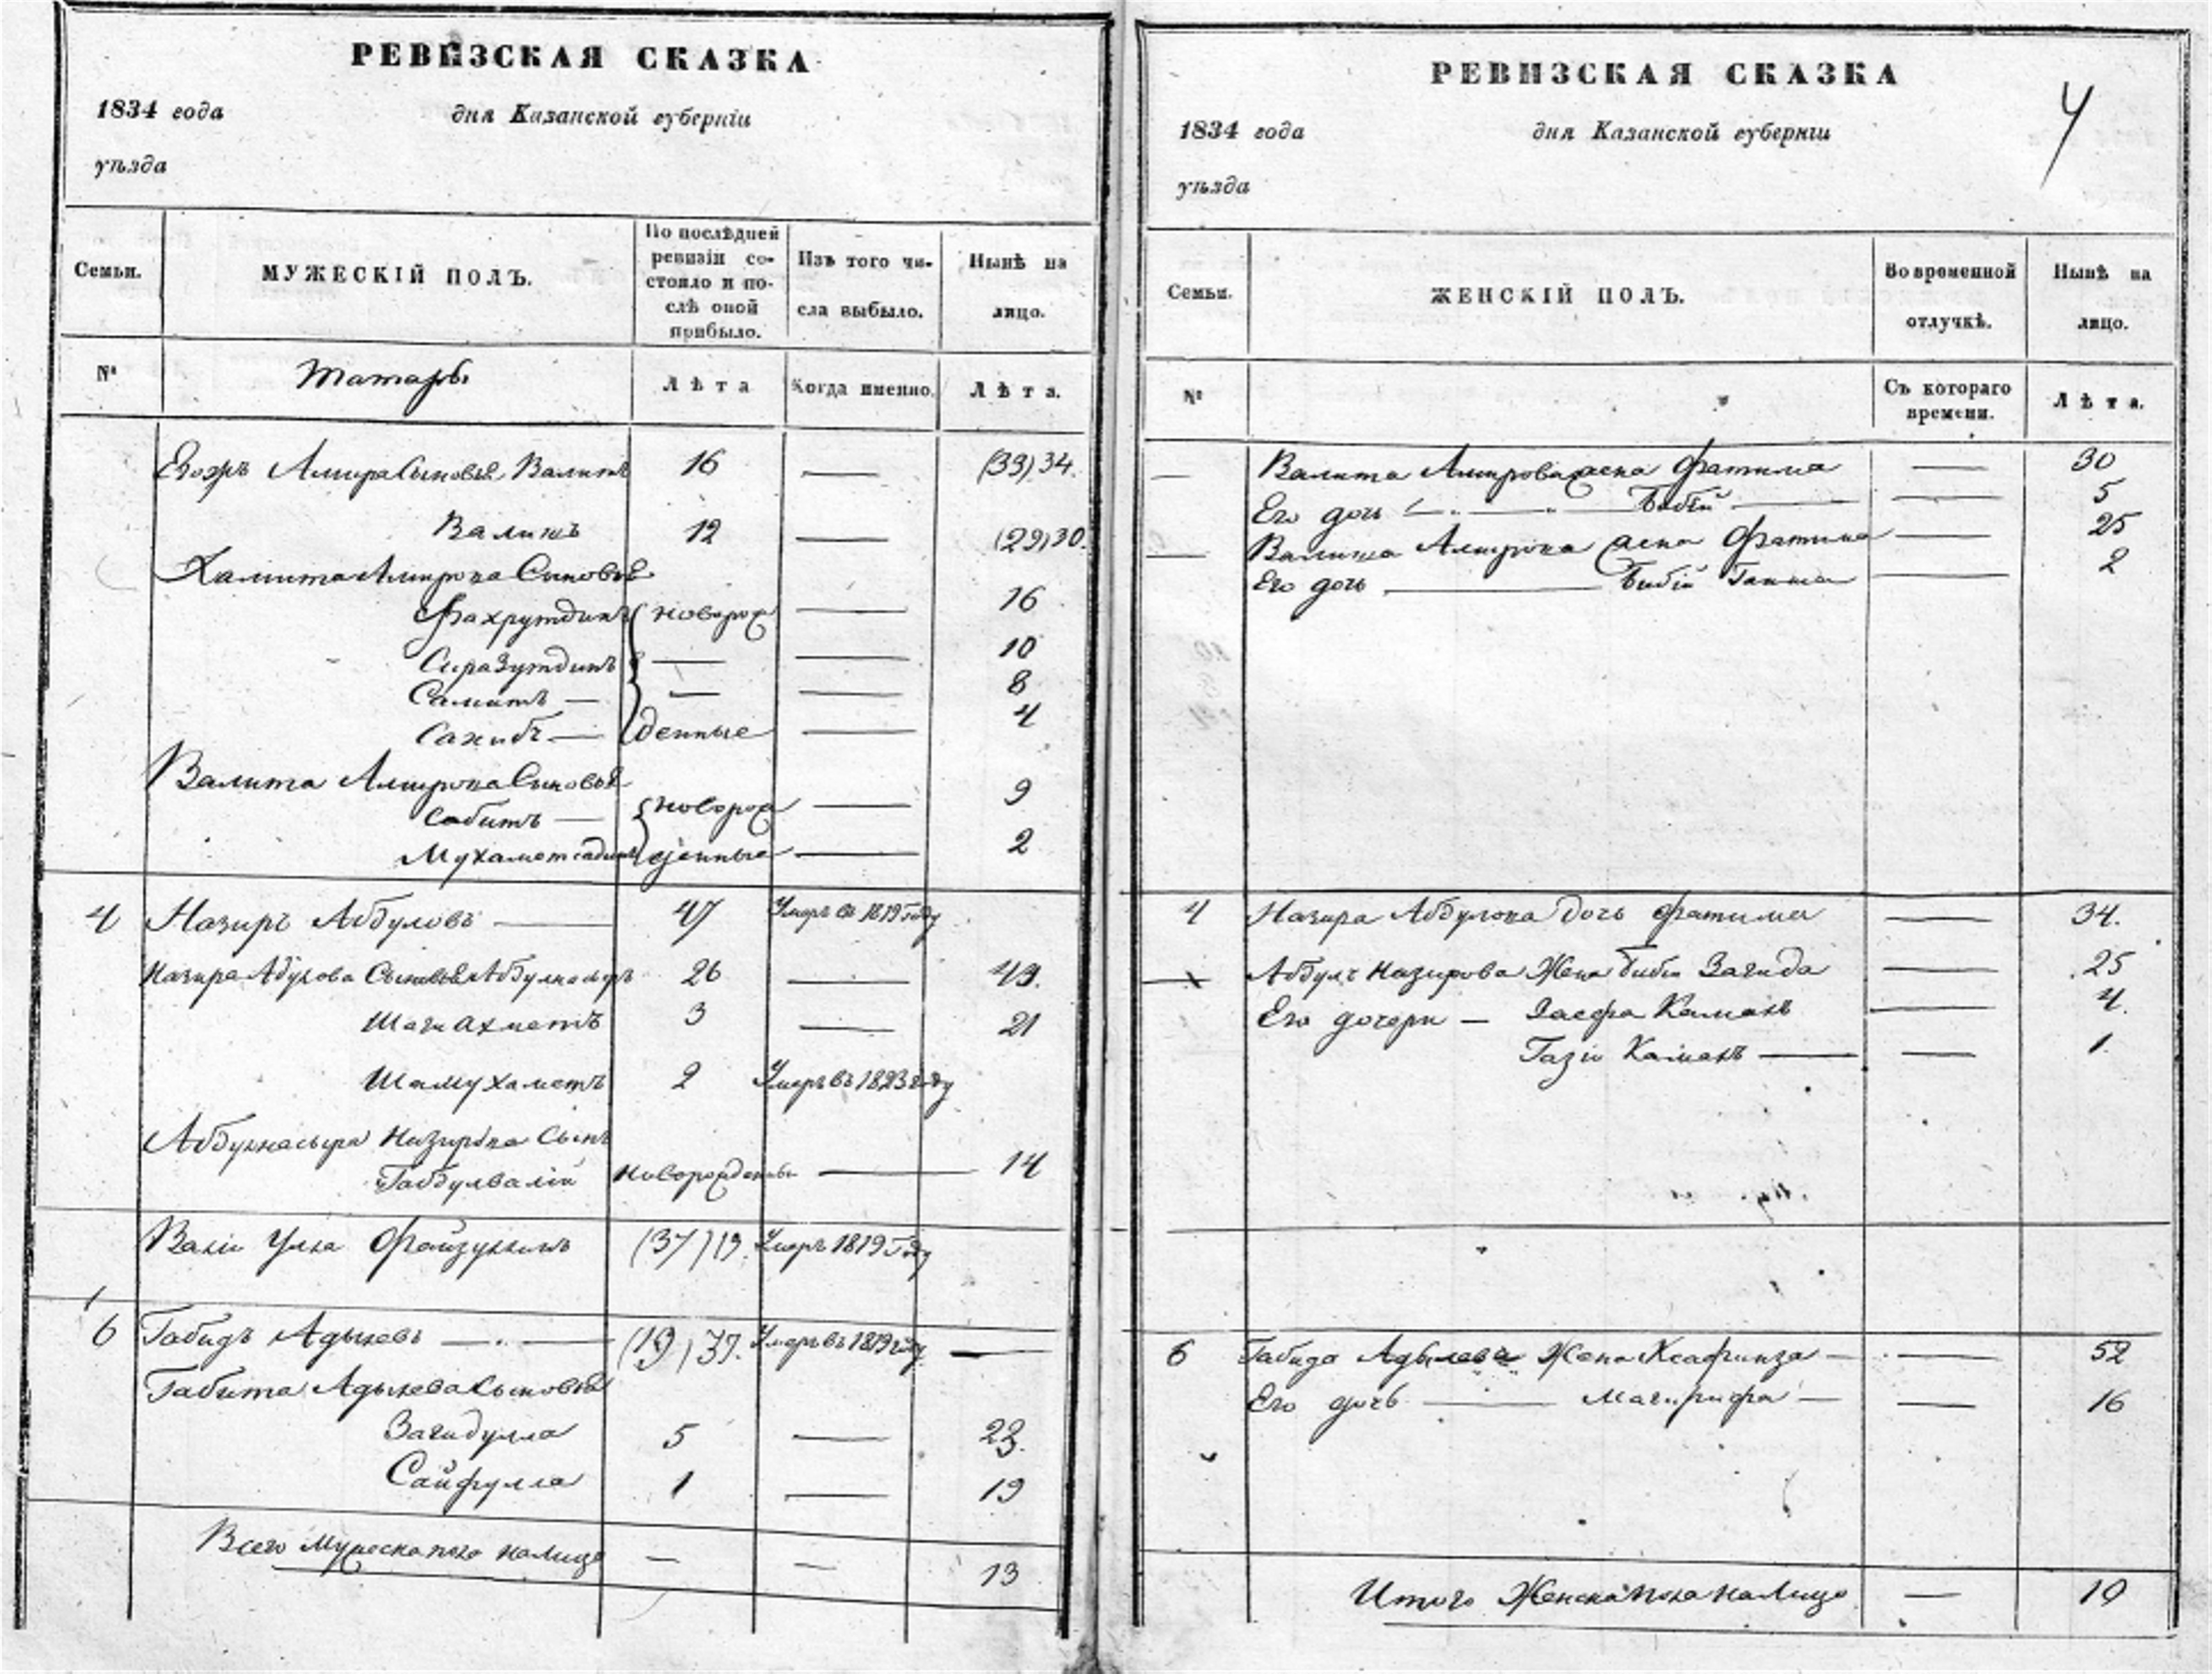 РЕВИЗСКАЯ СКАЗКА
1834 года дня Казанской губерніи
уѣзда
Семьи. МУЖЕСКІЙ ПОЛЪ. По послѣдней ревизіи состояло и послѣ оной прибыло. Изъ того числа выбыло. Нынѣ на лицо.
№ Татары Лѣта Когда именно. Лѣта.
Амира Сыновья Валитъ 16 — (33) 34.
Валишъ 12 — (29) 30.
Хамита Амирова Сыновья
Фахрутдинъ новорож 16
Сиразутдинъ — — 10
Самитъ — — — 8
Сахибъ — денные — 4
Валита Амирова Сыновья
Сабитъ — новорож — 9
Мухаметсадикъ денные — 2
4 Назиръ Абдуловъ — 47 Умеръ въ 1819 Году
Назира Абдулова Сыновья Абдулнасыръ 26 — 43.
Шагиахметъ 3 — 21
Шамухаметъ 2 Умеръ въ 1823 году
Абдулнасыра Назирова Сынъ
Габдулвалій новорожденный — 14
Вали Файзуллинъ (37) 19. Умеръ 1819 Году
6 Габидъ Адылевъ — (19) 37. Умеръ въ 1819 году —
Габита Адылева Сыновья
Загидулла 5 — 23.
Сайфулла 1 — 19
Всего Мужеска пола налицо — — 13
РЕВИЗСКАЯ СКАЗКА
4
1834 года дня Казанской губерніи
уѣзда
Семьи. ЖЕНСКІЙ ПОЛЪ. Во временной отлучкѣ. Нынѣ на лицо.
№ Съ котораго времени. Лѣта.
— Валита Амирова жена Фатима — 30
Его дочь — Бибій — 5
— Валиша Амирова жена Фатима — 25
Его дочь — Бибій — 2
4 Назира Абдулова дочь Фатима — 34.
Абдулъ Назирова Жена Биби Загида — 25
Его дочери — Камалъ — 4.
Газіи Камалъ — — 1.
6 Габида Адылева Жена — — 52
Его дочь — Магирифа — — 16
Итого Женска пола налицо — 10